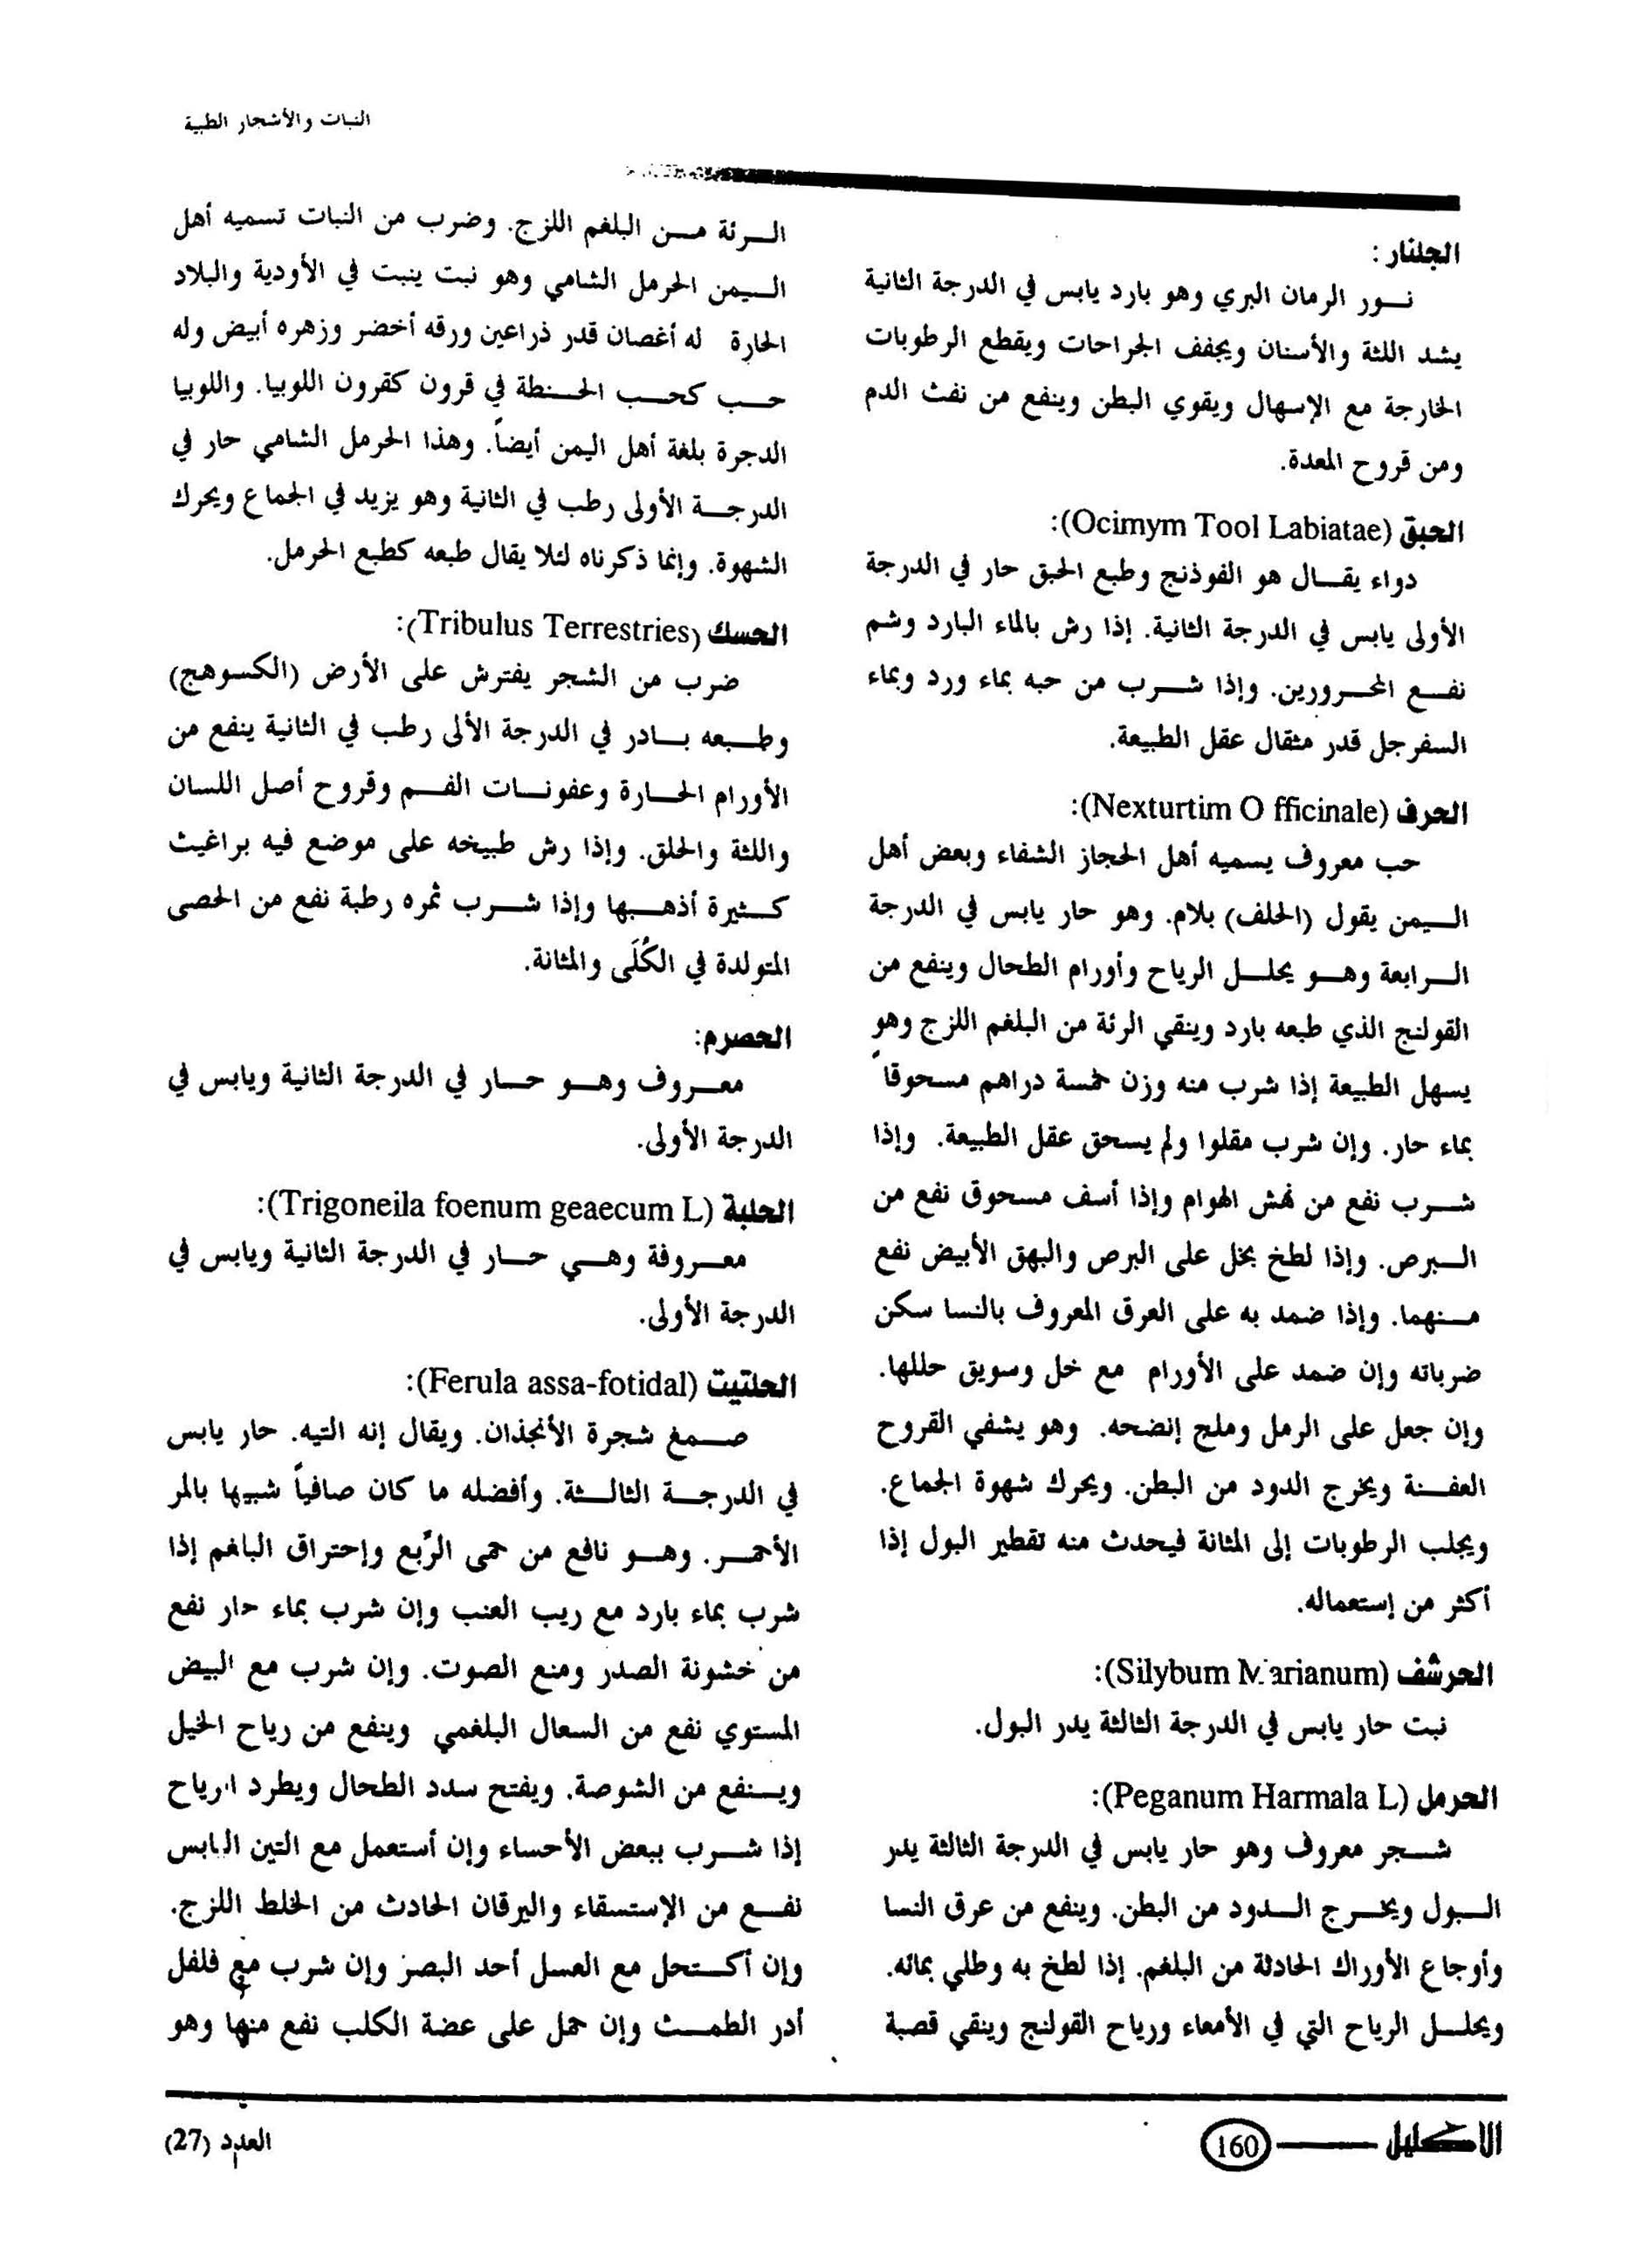 النبات والأشجار الطبية
الجلنار :
نور الرمان البري وهو بارد يابس في الدرجة الثانية
يشد اللثة والأسنان ويجفف الجراحات ويقطع الرطوبات
الخارجة مع الإسهال ويقوي البطن وينفع من نفث الدم
ومن قروح المعدة.
الحبق (Ocimym Tool Labiatae):
دواء يقال هو الفوذنج وطبع الحبق حار في الدرجة
الأولى يابس في الدرجة الثانية. إذا رش بالماء البارد وشم
نفع المحرورين. وإذا شرب من حبه بماء ورد وبماء
السفرجل قدر مثقال عقل الطبيعة.
الحرف (Nexturtim O fficinale):
حب معروف يسميه أهل الحجاز الشفاء وبعض أهل
اليمن يقول (الحلف) بلام. وهو حار يابس في الدرجة
الرابعة وهو يحلل الرياح وأورام الطحال وينفع من
القولنج الذي طبعه بارد وينقي الرئة من البلغم اللزج وهو
يسهل الطبيعة إذا شرب منه وزن خمسة دراهم مسحوقاً
بماء حار. وإن شرب مقلوا ولم يسحق عقل الطبيعة. وإذا
شرب نفع من نهش الهوام وإذا أسف مسحوق نفع من
البرص. وإذا لطخ بخل على البرص والبهق الأبيض نفع
منهما. وإذا ضمد به على العرق المعروف بالنسا سكن
ضرباته وإن ضمد على الأورام مع خل وسويق حللها.
وإن جعل على الرمل وملح إنضحه. وهو يشفي القروح
العفنة ويخرج الدود من البطن. ويحرك شهوة الجماع.
ويجلب الرطوبات إلى المثانة فيحدث منه تقطير البول إذا
أكثر من إستعماله.
الحرشف (Silybum Marianum):
نبت حار يابس في الدرجة الثالثة يدر البول.
الحرمل (Peganum Harmala L):
شجر معروف وهو حار يابس في الدرجة الثالثة يدر
البول ويخرج الدود من البطن. وينفع من عرق النسا
وأوجاع الأوراك الحادثة من البلغم. إذا لطخ به وطلي بمائه.
ويحلل الرياح التي في الأمعاء ورياح القولنج وينقي قصبة
الرئة من البلغم اللزج. وضرب من النبات تسميه أهل
اليمن الحرمل الشامي وهو نبت ينبت في الأودية والبلاد
الحارة له أغصان قدر ذراعين ورقه أخضر وزهره أبيض وله
حب كحب الحنطة في قرون كقرون اللوبيا. واللوبيا
الدجرة بلغة أهل اليمن أيضاً. وهذا الحرمل الشامي حار في
الدرجة الأولى رطب في الثانية وهو يزيد في الجماع ويحرك
الشهوة. وإنما ذكرناه لئلا يقال طبعه كطبع الحرمل.
الحسك (Tribulus Terrestries):
ضرب من الشجر يفترش على الأرض (الكسوهج)
وطبعه بادر في الدرجة الألى رطب في الثانية ينفع من
الأورام الحارة وعفونات الفم وقروح أصل اللسان
واللثة والحلق. وإذا رش طبيخه على موضع فيه براغيث
كثيرة أذهبها وإذا شرب ثمره رطبة نفع من الحصى
المتولدة في الكُلَى والمثانة.
الحصرم:
معروف وهو حار في الدرجة الثانية ويابس في
الدرجة الأولى.
الحلبة (Trigoneila foenum geaecum L):
معروفة وهي حار في الدرجة الثانية ويابس في
الدرجة الأولى.
الحلتيت (Ferula assa-fotidal):
صمغ شجرة الأنجذان. ويقال إنه التيه. حار يابس
في الدرجة الثالثة. وأفضله ما كان صافياً شبيها بالمر
الأحمر. وهو نافع من حمى الرّبع وإحتراق البلغم إذا
شرب بماء بارد مع ريب العنب وإن شرب بماء حار نفع
من خشونة الصدر ومنع الصوت. وإن شرب مع البيض
المستوي نفع من السعال البلغمي وينفع من رياح الخيل
وينفع من الشوصة. ويفتح سدد الطحال ويطرد الرياح
إذا شرب ببعض الأحساء وإن أستعمل مع التين اليابس
نفع من الإستسقاء واليرقان الحادث من الخلط اللزج.
وإن أكتحل مع العسل أحد البصر وإن شرب مع فلفل
أدر الطمث وإن حمل على عضة الكلب نفع منها وهو
الاكليل 160
العدد (27)